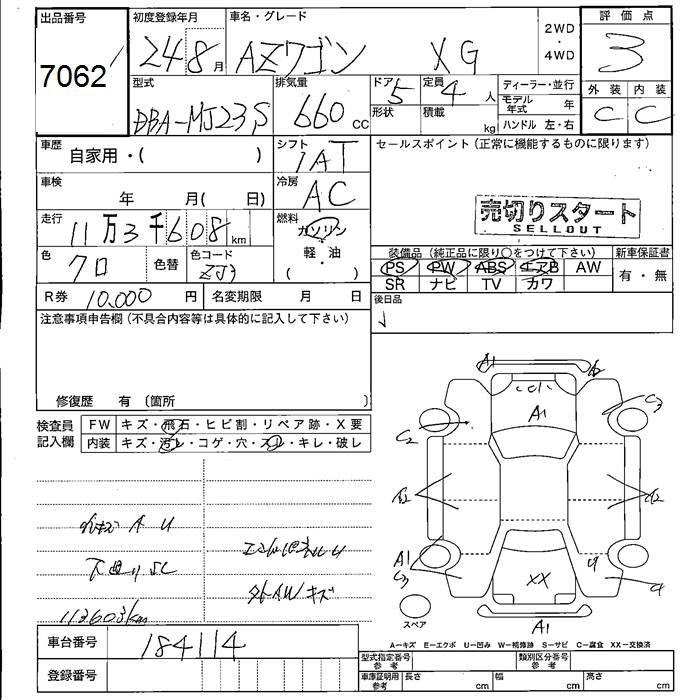 出品番号 初度登録年月 車名・グレード 2WD・4WD 評価点
7062 24 8月 AZワゴン XG 3
型式 排気量 ドア 定員 ディーラー・並行 外装 内装
DBA-MJ23S 660cc 5 4人 モデル年式 年 C C
形状 積載 kg ハンドル 左・右
車歴 自家用・( ) シフト IAT セールスポイント(正常に機能するものに限ります)
車検 年 月( 日) 冷房 AC
売切りスタート
SELLOUT
走行 11万3千608km 燃料 ガソリン 軽・油 ( )
色 クロ 色替 色コード ZJ3
装備品(純正品に限り○をつけて下さい) 新車保証書
PS PW ABS エアB AW 有・無
SR ナビ TV カワ
R券 10,000円 名変期限 月 日 後日品
注意事項申告欄(不具合内容等は具体的に記入して下さい)
修復歴 有 〔箇所 〕
検査員記入欄 FW キズ・飛石・ヒビ割・リペア跡・X要
内装 キズ・汚レ・コゲ・穴・スレ・キレ・破レ
A1
A1
C2 C3
A2
A1
C3
XX
A1
スペア
下廻りSC
113603km
A-キズ E-エクボ U-凹み W-補修跡 S-サビ C-腐食 XX-交換済
車台番号 184114
型式指定番号 参考 類別区分番号 参考
登録番号
車庫証明用 参考 長さ cm 幅 cm 高さ cm